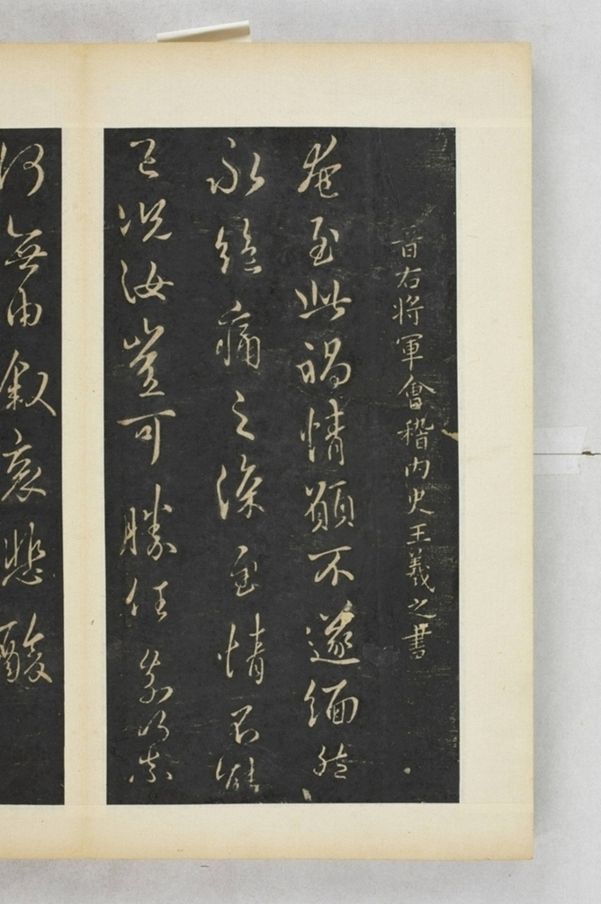 晉右將軍會稽內史王羲之書
奄至此禍情願不遂緬然
永絕痛之深至情不能
已況汝豈可勝任奈何奈
何無由敘哀悲酸